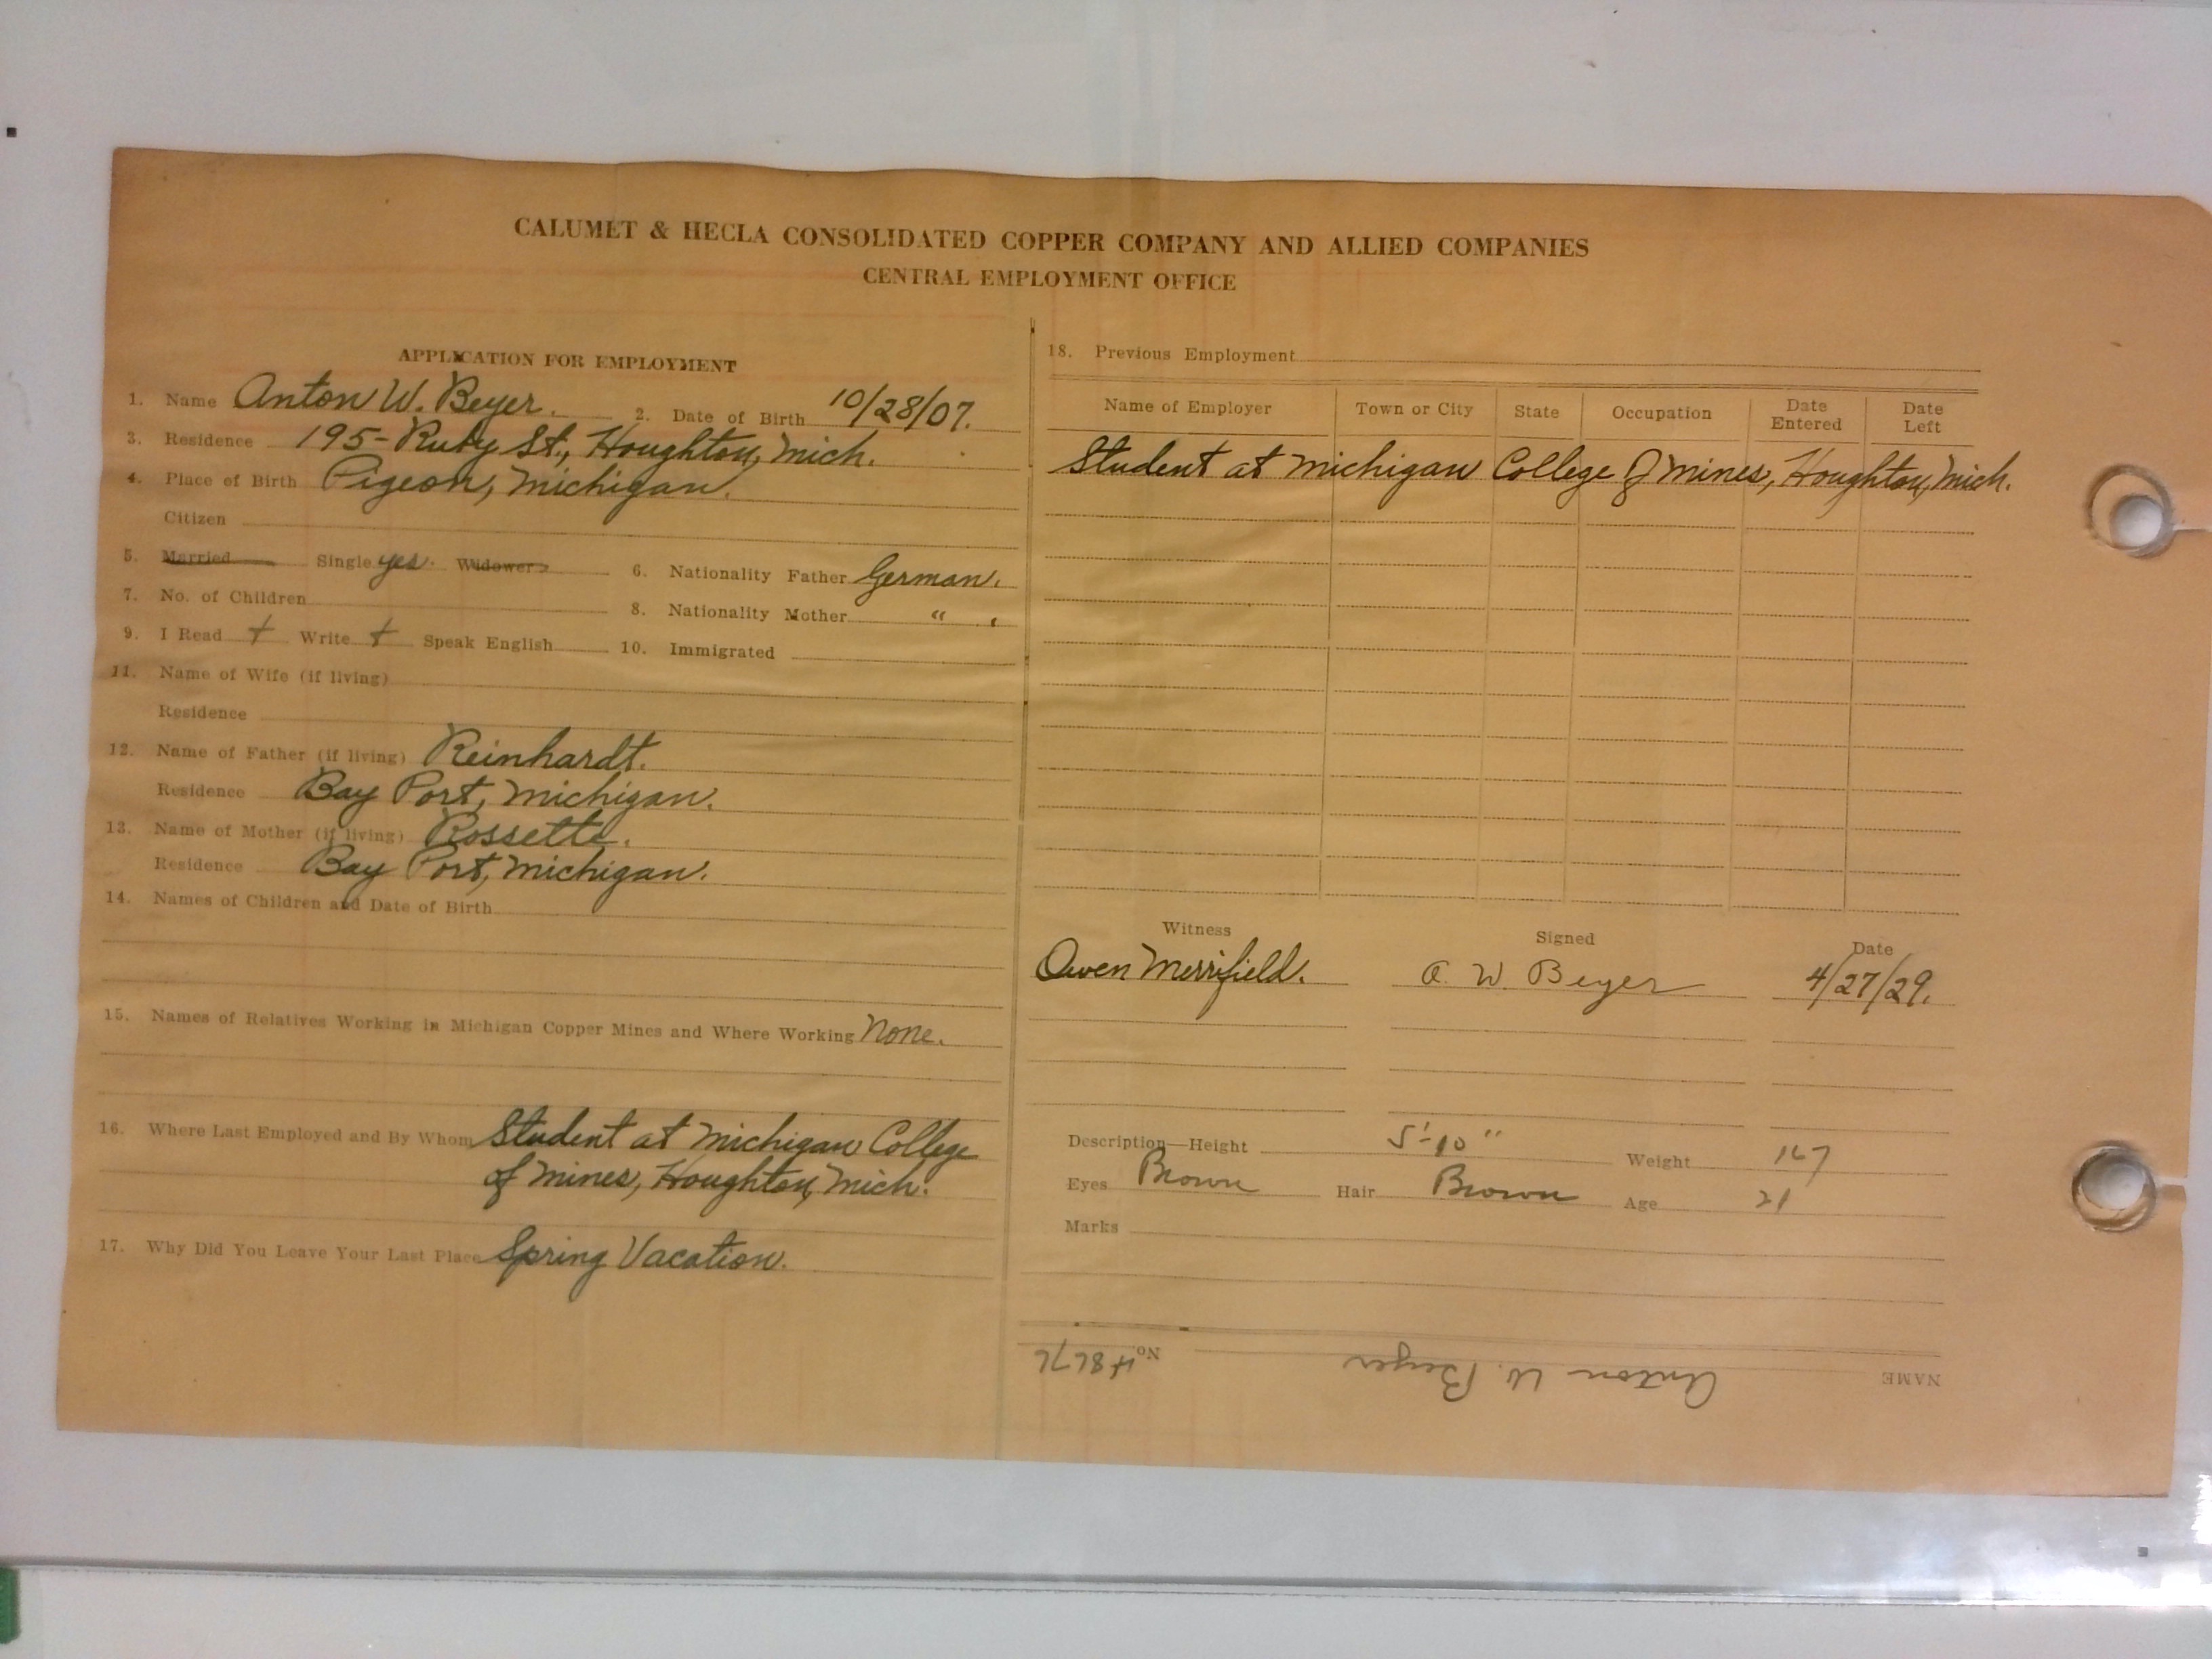 CALUMET & HECLA CONSOLIDATED COPPER COMPANY AND ALLIED COMPANIES
CENTRAL EMPLOYMENT OFFICE
APPLICATION FOR EMPLOYMENT
1. Name Anton W. Beyer. 2. Date of Birth 10/28/07.
3. Residence 195- Ruby St., Houghton, Mich.
4. Place of Birth Pigeon, Michigan.
Citizen
5. Married Single yes. Widower 6. Nationality Father German.
7. No. of Children 8. Nationality Mother " .
9. I Read + Write + Speak English 10. Immigrated
11. Name of Wife (if living)
Residence
12. Name of Father (if living) Reinhardt.
Residence Bay Port, Michigan.
13. Name of Mother (if living) Rossette.
Residence Bay Port, Michigan.
14. Names of Children and Date of Birth
15. Names of Relatives Working in Michigan Copper Mines and Where Working None.
16. Where Last Employed and By Whom Student at Michigan College
of Mines, Houghton, Mich.
17. Why Did You Leave Your Last Place Spring Vacation.
18. Previous Employment
Name of Employer Town or City State Occupation Date Entered Date Left
Student at Michigan College of Mines, Houghton, Mich.
Witness Signed Date
Owen Merrifield. A. W. Beyer 4/27/29.
Description—Height 5'-10" Weight 167
Eyes Brown Hair Brown Age 21
Marks
NAME Anton W. Beyer No.